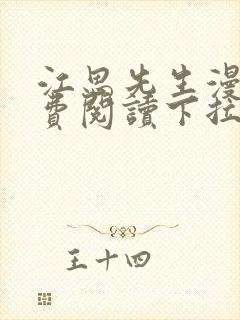 江畏先生漫
費閱讀下拉
王十四